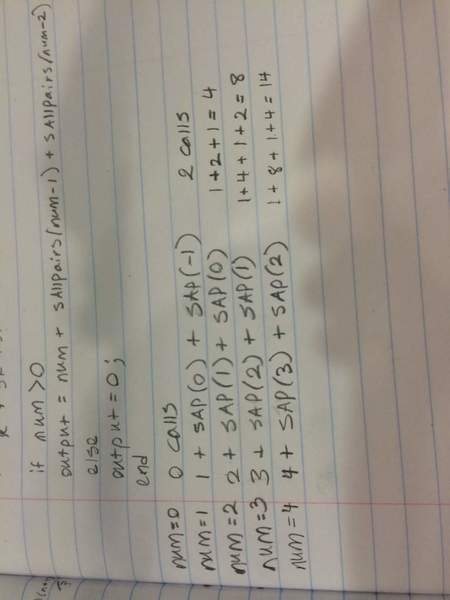 if num >0
output = num + sAllpairs(num-1) + sAllpairs(num-2)
else
output = 0;
end
num=0 0 calls
num=1 1 + SAP(0) + SAP(-1) 2 calls
num=2 2 + SAP(1) + SAP(0) 1+2+1=4
num=3 3 + SAP(2) + SAP(1) 1+4+1+2=8
num=4 4 + SAP(3) + SAP(2) 1+8+1+4=14